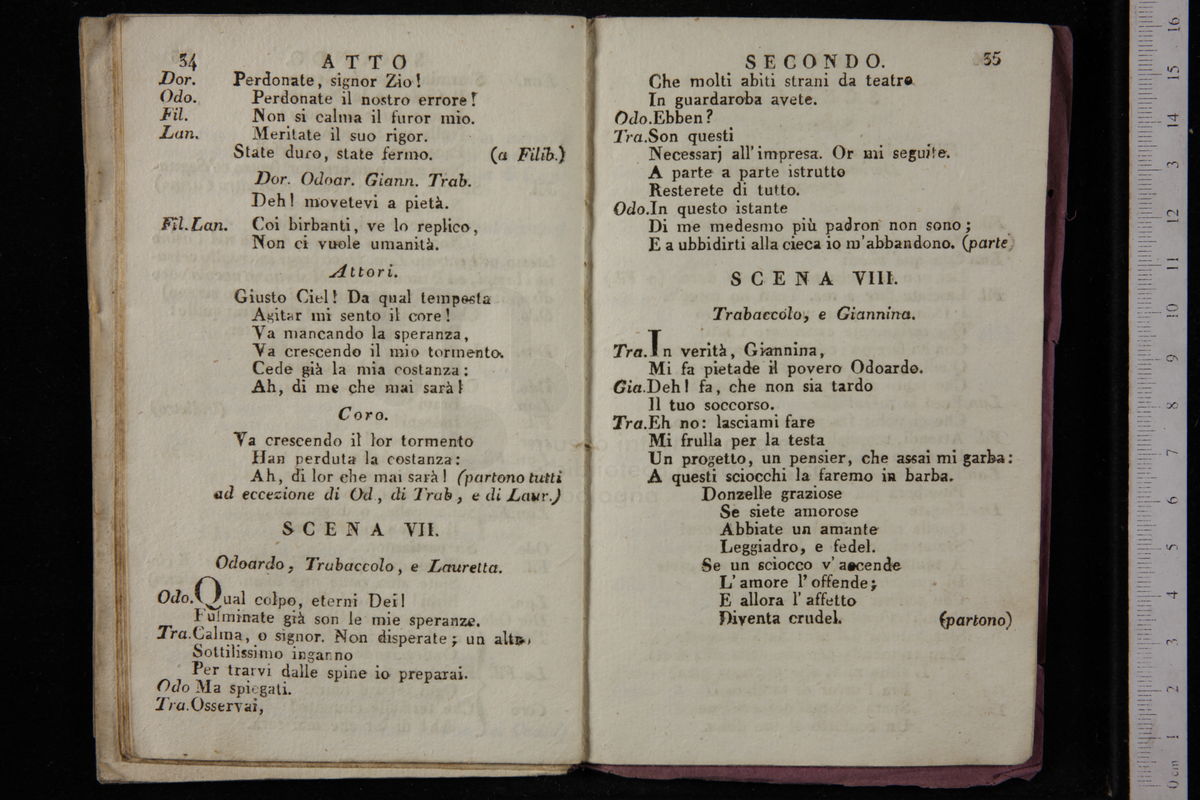 34 ATTO
Dor. Perdonate, signor Zio!
Odo. Perdonate il nostro errore!
Fil. Non si calma il furor mio.
Lan. Meritate il suo rigor.
State duro, state fermo. (a Filib.)
Dor. Odoar. Giann. Trab.
Deh! movetevi a pietà.
Fil. Lan. Coi birbanti, ve lo replico,
Non ci vuole umanità.
Attori.
Giusto Ciel! Da qual tempesta
Agitar mi sento il core!
Va mancando la speranza,
Va crescendo il mio tormento.
Cede già la mia costanza:
Ah, di me che mai sarà!
Coro.
Va crescendo il lor tormento
Han perduta la costanza:
Ah, di lor che mai sarà! (partono tutti
ad eccezione di Od, di Trab, e di Laur.)
SCENA VII.
Odoardo, Trabaccolo, e Lauretta.
Odo. Qual colpo, eterni Dei!
Fulminate già son le mie speranze.
Tra. Calma, o signor. Non disperate; un altro
Sottilissimo inganno
Per trarvi dalle spine io preparai.
Odo Ma spiegati.
Tra. Osservai,
SECONDO. 35
Che molti abiti strani da teatro
In guardaroba avete.
Odo. Ebben?
Tra. Son questi
Necessarj all'impresa. Or mi seguite.
A parte a parte istrutto
Resterete di tutto.
Odo. In questo istante
Di me medesmo più padron non sono;
E a ubbidirti alla cieca io m'abbandono. (parte)
SCENA VIII.
Trabaccolo, e Giannina.
Tra. In verità, Giannina,
Mi fa pietade il povero Odoardo.
Gia. Deh! fa, che non sia tardo
Il tuo soccorso.
Tra. Eh no: lasciami fare
Mi frulla per la testa
Un progetto, un pensier, che assai mi garba:
A questi sciocchi la faremo in barba.
Donzelle graziose
Se siete amorose
Abbiate un amante
Leggiadro, e fedel.
Se un sciocco v'accende
L'amore l'offende;
E allora l'affetto
Diventa crudel. (partono)
0 cm 1 2 3 4 5 6 7 8 9 10 11 12 13 14 15 16